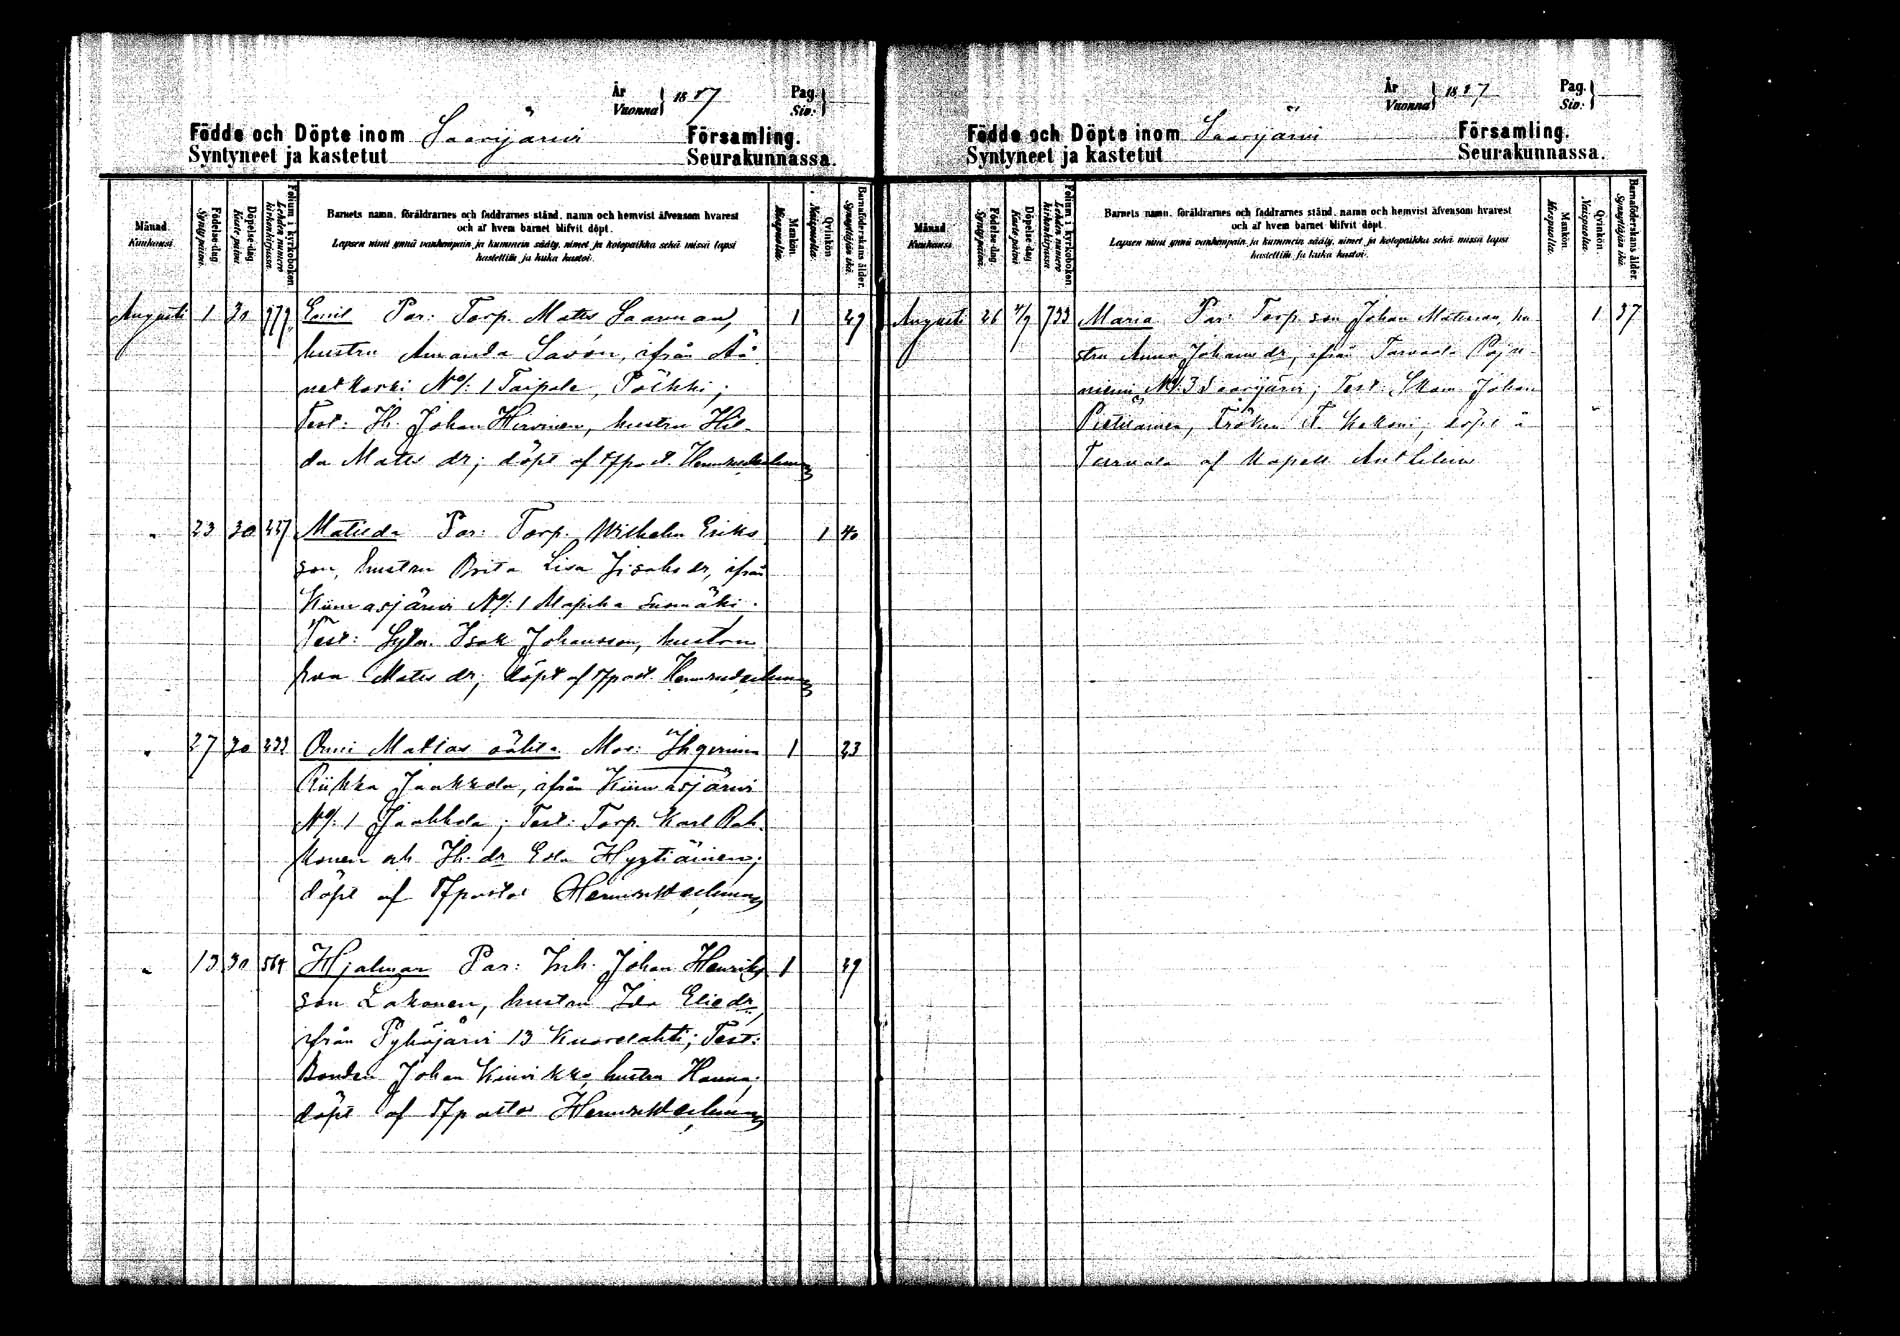 År
Vuonna } 1887
Pag.
Siv. }
Födde och Döpte inom Saarijärvi Församling.
Syntyneet ja kastetut Seurakunnassa.
Månad.
Kuukausi.
Födelse-dag.
Synty-päivä.
Döpelse-dag.
Kaste-päivä.
Folium i kyrkoboken.
Lehden numero
kirkonkirjassa.
Barnets namn, föräldrarnes och faddrarnes stånd, namn och hemvist äfvensom hvarest
och af hvem barnet blifvit döpt.
Lapsen nimi ynnä vanhempain ja kummein sääty, nimet ja kotopaikka sekä missä lapsi
kastettiin ja kuka kastoi.
Mankön.
Miespuolia.
Qvinkön.
Naispuolia.
Barnaföderskans ålder.
Synnyttäjän ikä.
Augusti 1 30 Emil Par: Torp. Matts Saarman, 1 29
hustru Amanda Savón, ifrån Ää-
netkoski No: 1 Taipale, Pölkki;
Test: Jh. Johan Hirvinen, hustru Hil-
da Matts dr; döpt af
" 23 30 227 Matilda Par: Torp. Wilhelm Eriks 1 40
son, hustru Brita Lisa dr, ifrån
Kiimasjärvi No: 1
Test: Isak Johansson, hustru
Eva Matts dr; döpt af
" 27 30 232 Onni Matias oäkta Mor: 1 23
Riikka Jaakkola, ifrån Kiimasjärvi
No: 1 Jaakkola; Test: Torp. Karl Rah-
konen och Jh. dr Eva Hyytiäinen;
döpt af
" 13 30 564 Hjalmar Par: Inh. Johan Henriks 1 29
son Lakonen, hustru Ida Elie dr,
ifrån Pyhäjärvi 13 Kuorelahti; Test:
Bonden Johan Kiuvikko, hustru Hanna;
döpt af
År
Vuonna } 1887
Pag.
Siv. }
Födde och Döpte inom Saarijärvi Församling.
Syntyneet ja kastetut Seurakunnassa.
Månad.
Kuukausi.
Födelse-dag.
Synty-päivä.
Döpelse-dag.
Kaste-päivä.
Folium i kyrkoboken.
Lehden numero
kirkonkirjassa.
Barnets namn, föräldrarnes och faddrarnes stånd, namn och hemvist äfvensom hvarest
och af hvem barnet blifvit döpt.
Lapsen nimi ynnä vanhempain ja kummein sääty, nimet ja kotopaikka sekä missä lapsi
kastettiin ja kuka kastoi.
Mankön.
Miespuolia.
Qvinkön.
Naispuolia.
Barnaföderskans ålder.
Synnyttäjän ikä.
Augusti 26 4/9 733 Maria Par: Torp. son Johan Matsson, hu 1 37
stru Anna Johans dr, ifrån Tarvaala Paju-
niemi No: 3 Saarijärvi; Test: Johan
Pietiläinen, Fröken F. Kekoni; döpt å
Tarvala af Kapell.